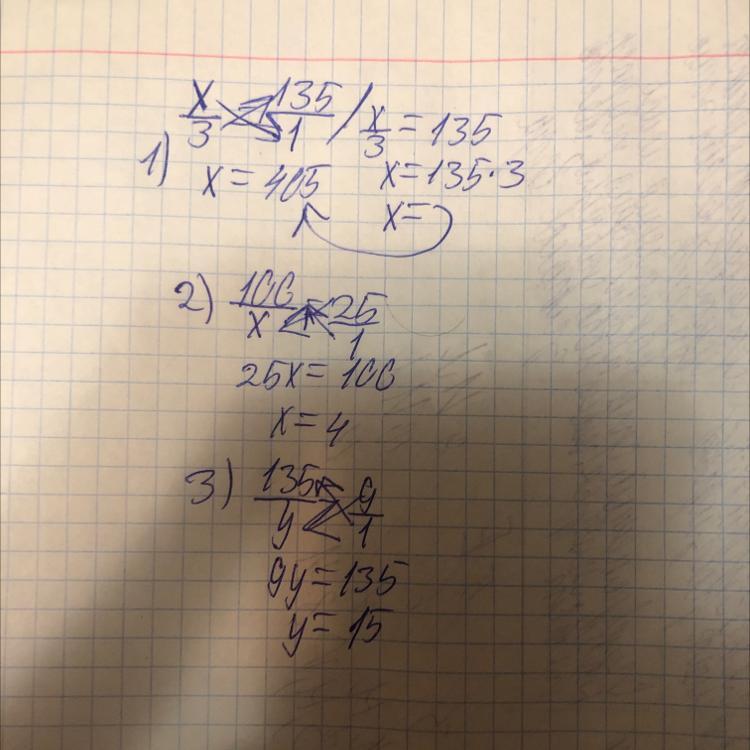 x/3 = 135/1 / x/3 = 135
1) x = 405 x = 135·3
x =
2) 100/x = 25/1
25x = 100
x = 4
3) 135/y = 9/1
9y = 135
y = 15